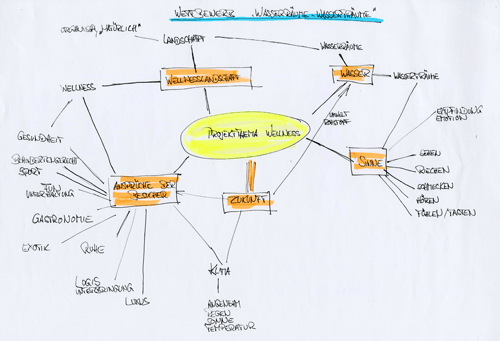 WETTBEWERB „WASSERRÄUME - WASSERTRÄUME"
ORGANISCH, „NATÜRLICH"
LANDSCHAFT
WASSERRÄUME
WELLNESSLANDSCHAFT
WASSER
WASSERTRÄUME
WELLNESS
UMWELT
EMPFINDUNG
EMOTION
PROJEKTTHEMA WELLNESS
GESUNDHEIT
SINNE
SEHEN
RIECHEN
SCHMECKEN
HÖREN
FÜHLEN / TASTEN
BEHINDERTENGERECHT
SPORT
FUN
UNTERHALTUNG
ANSPRÜCHE DER
BESUCHER
ZUKUNFT
GASTRONOMIE
EXOTIK
RUHE
LOGIS
LUXUS
KLIMA
ANGENEHM
REGEN
SONNE
TEMPERATUR